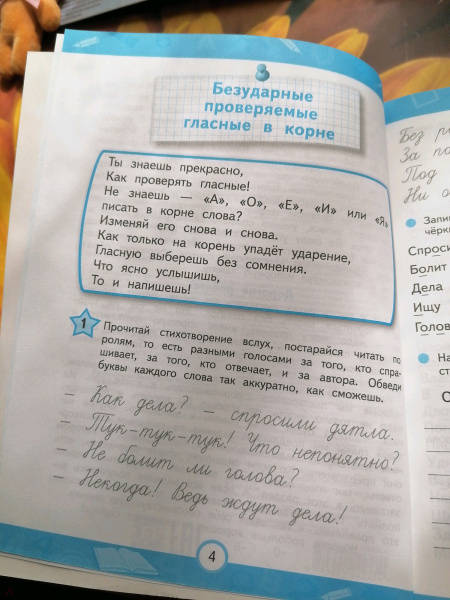 Безударные
проверяемые
гласные в корне
Ты знаешь прекрасно,
Как проверять гласные!
Не знаешь — «А», «О», «Е», «И» или «Я»
писать в корне слова?
Изменяй его снова и снова.
Как только на корень упадёт ударение,
Гласную выберешь без сомнения.
Что ясно услышишь,
То и напишешь!
1
Прочитай стихотворение вслух, постарайся читать по
ролям, то есть разными голосами за того, кто спра-
шивает, за того, кто отвечает, и за автора. Обведи
буквы каждого слова так аккуратно, как сможешь.
– Как дела? – спросили дятла.
– Тук-тук-тук! Что непонятно?
– Не болит ли голова?
– Некогда! Ведь ждут дела!
4
Без
За
Под
Ни
Запи
чёрк
Спрос
Болит
Дела
Ищу
Голов